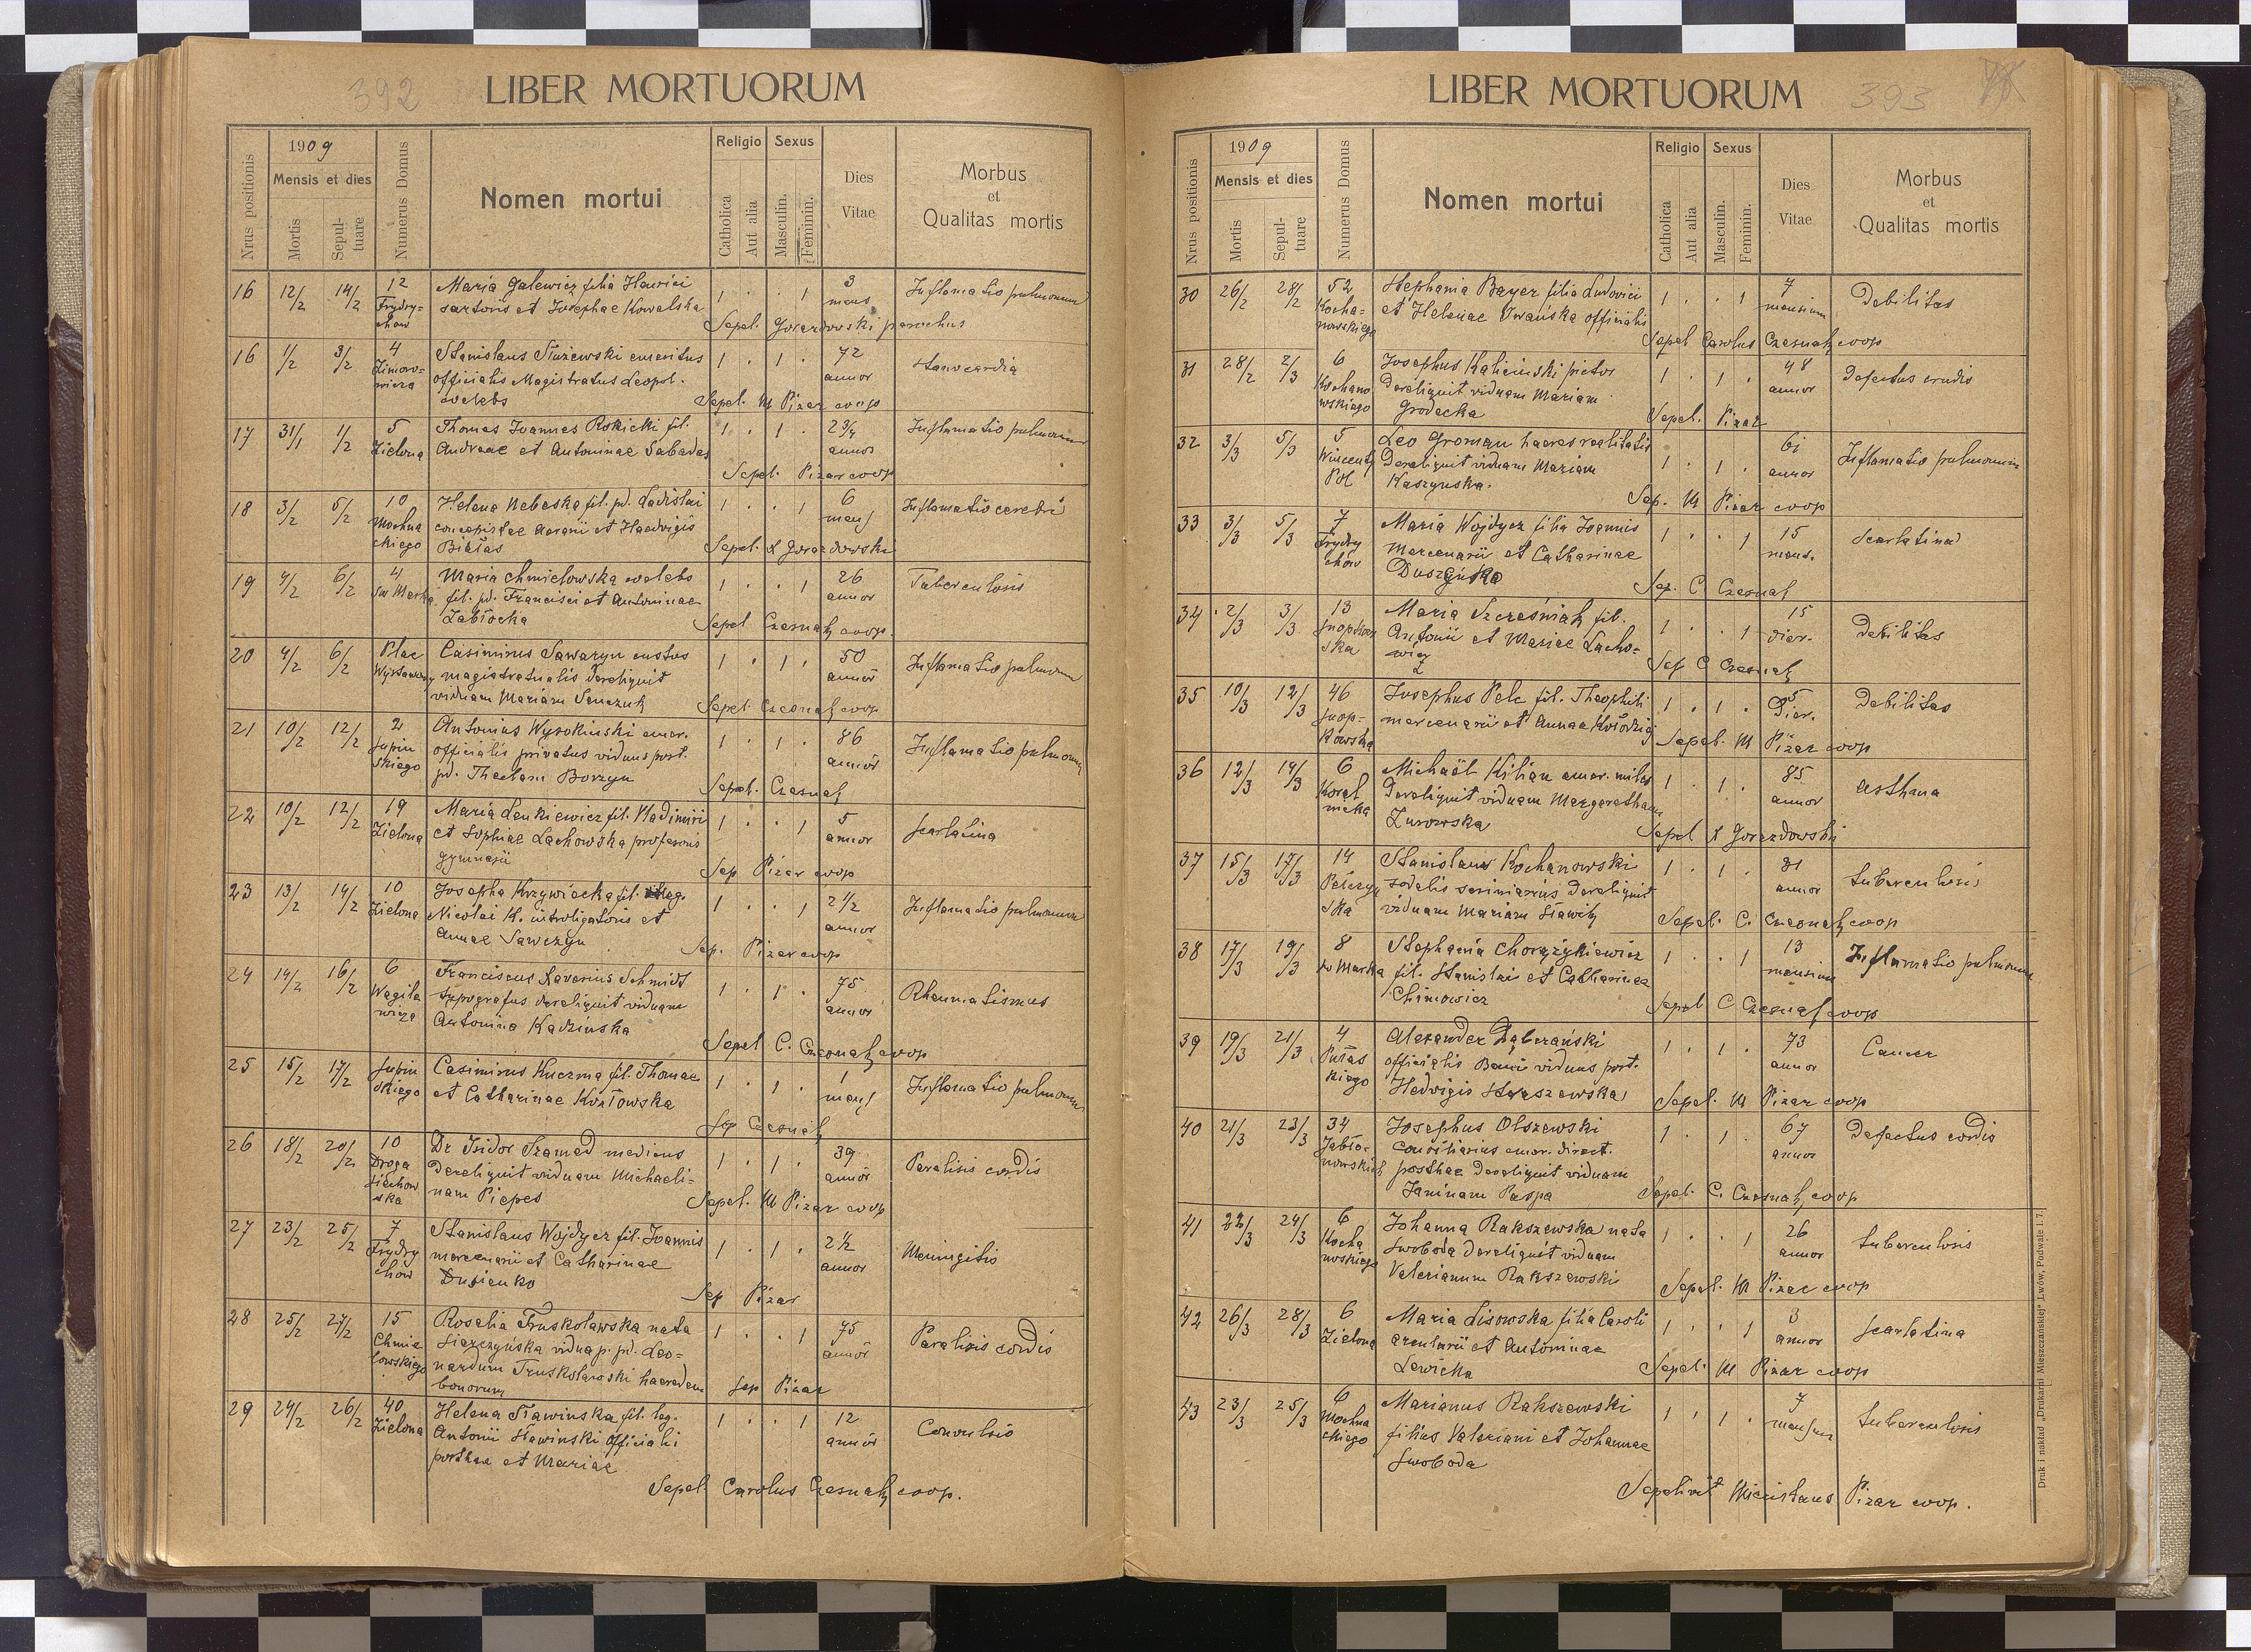 392
LIBER MORTUORUM
Nrus positionis
1909
Mensis et dies
Mortis
Sepul-
tuare
Numerus Domus
Nomen mortui
Religio
Catholica
Aut alia
Sexus
Masculin.
Feminin.
Dies
Vitae
Morbus
et
Qualitas mortis
16 12/2 14/2 12 Maria Galewicz filia 1 . . 1 3 Inflamatio pulmonum
Frydry- sartoris et Josephae Kowalska mens
chow Sepel. Gorazdowski parochus
16 1/2 3/2 4 Stanislaus Służewski emeritus 1 . 1 . 72 Stenocardia
Zimoro- officialis Magistratus Leopol. annor
wicza coelebs Sepel. M Pizar coop
17 31/1 1/2 5 Thomas Joannes Rokicki fil. 1 . 1 . 2 3/4 Inflamatio pulmonum
Zielona Andreae et Antoninae Sabadas annor
Sepel. Pizar coop
18 3/2 5/2 10 Helena Nebeska fil. pd. Ladislai 1 . . 1 6 Inflamatio cerebri
Mochna et Haedvigis mens
ckiego Białas Sepel. Gorazdowski
19 4/2 6/2 4 Maria Chmielowska coelebs 1 . . 1 26 Tuberculosis
św Marka fil. pd. Francisci et Antoninae annor
Zabłocka Sepel Czesnak coop.
20 4/2 6/2 Plac Casimirus Sawaryn custos 1 . 1 . 50 Inflamatio pulmonum
magistratualis dereliquit annor
viduam Mariam Senczuk Sepel. Czesnak coop
21 10/2 12/2 2 Antonius Wysokinski emer. 1 . 1 . 86 Inflamatio pulmonum
Supin officialis privatus viduus post. annor
skiego pd. Theclam Borzyn Sepel. Czesnak
22 10/2 12/2 19 Maria Lenkiewicz fil. Wladimiri 1 . . 1 5 Scarlatina
Zielona et Sophiae Lachowska profesoris annor
gymnasii Sep Pizar coop
23 13/2 14/2 10 Josepha Krzywiecka fil. leg. 1 . . 1 2 1/2 Inflamatio pulmonum
Zielona Nicolai K. introligatoris et annor
Annae Sawczyn Sep. Pizar coop
24 14/2 16/2 6 Franciscus Xaverius Schmidt 1 . 1 . 75 Rheumatismus
Wagile typografus dereliquit viduam annor
wicza Antonina Kadzinska Sepel C. Czesnak coop
25 15/2 17/2 Supin Casimirus Kuczma fil. Thomae 1 . 1 . 1 Inflamatio pulmonum
skiego et Catharinae Kozłowska mens
Sep Czesnak
26 18/2 20/2 10 Dr Isidor Szamed medicus 1 . 1 . 39 Paralisis cordis
Droga dereliquit viduam Michaeli- annor
Sichow nam Piepes
ska Sepel. M Pizar coop
27 23/2 25/2 7 Stanislaus Wojdycz fil. Joannis 1 . 1 . 2 1/2 Meningitis
Frydry mercenarii et Catharinae annor
chow Dusienko Sep Pizar
28 25/2 27/2 15 Rosalia Truskolawska nata 1 . . 1 75 Paralisis cordis
Chmie vidua p. pd. Leo- annor
lowskiego nardum Truskolawski haeredem
bonorum Sep Pizar
29 24/2 26/2 40 Helena Sławinska fil. leg. 1 . . 1 12 Convulsio
Zielona Antonii Sławinski officiali annor
posthae et Mariae
Sepel. Carolus Czesnak coop.
LIBER MORTUORUM
393
Nrus positionis
1909
Mensis et dies
Mortis
Sepul-
tuare
Numerus Domus
Nomen mortui
Religio
Catholica
Aut alia
Sexus
Masculin.
Feminin.
Dies
Vitae
Morbus
et
Qualitas mortis
30 26/2 28/2 52 Stephania Bayer filia Ludovici 1 . . 1 7 Debilitas
Kocha- et Helenae Iwańska officialis mensium
nowskiego Sepel Carolus Czesnak coop
31 28/2 2/3 6 Josephus Kaliciński pictor 1 . 1 . 48 Defectus
Kochano dereliquit viduam Mariam annor
wskiego Grodecka Sepel. Pizar
32 3/3 5/3 5 Leo Groman haeres realitatis 1 . 1 . 61 Inflamatio pulmonum
Wincenty dereliquit viduam Mariam annor
Pol Kaszynska. Sep. M Pizar coop
33 3/3 5/3 7 Maria Wojdycz filia Joannis 1 . . 1 15 Scarlatina
Frydry Mercenarii et Catharinae mens.
chów Duszeńko Sep. C Czesnak
34 2/3 3/3 13 Maria Szcześniak fil. 1 . . 1 15 Debilitas
Snopkow Antonii et Mariae Lacho- dier.
ska wicz Sep C Czesnak
35 10/3 12/3 46 Josephus Pelc fil. Theophili 1 . 1 . 5 Debilitas
Snop- mercenarii et Annae Kołodziej dier.
kowska Sepel. M Pizar coop
36 12/3 14/3 6 Michaël Kilian emer. miles 1 . 1 . 85 Asthma
Koral dereliquit viduam Margaretham annor
nicka Zurowska Sepel Gorazdowski
37 15/3 17/3 14 Stanislaus Kochanowski 1 . 1 . 31 tuberculosis
Pełczyn sodalis dereliquit annor
ska viduam Mariam Sławik Sepel. C. Czesnak coop
38 17/3 19/3 8 Stephania Chorzykiewicz 1 . . 1 13 Inflamatio pulmonum
św Marka fil. Stanislai et Catharinae mensium
Chimowicz Sepel C Czesnak coop
39 19/3 21/3 4 Alexander Dąbczański 1 . 1 . 73 Cancer
Pułas officialis viduus post. annor
kiego Hedwigis Sepel. M Pizar coop
40 21/3 23/3 34 Josephus Olszewski 1 . 1 . 67 Defectus cordis
Jabło- consiliarius emer. direct. annor
nowskich posthae dereliquit viduam
Janinam Paspa Sepel. C. Czesnak coop
41 22/3 24/3 6 Johanna Rakszewska nata 1 . . 1 26 tuberculosis
Kocha Swoboda dereliquit viduum annor
nowskiego Valerianum Rakszewski Sepel. M Pizar coop
42 26/3 28/3 6 Maria Lisowska filia Caroli 1 . . 1 3 Scarlatina
Zielona arcularii et Antoninae annor
Lewicka Sepel. M Pizar coop
43 23/3 25/3 6 Marianus Rakszewski 1 . 1 . 7 tuberculosis
Mochna filius Valeriani et Johannae mensium
ckiego Swoboda
Sepelivit Miecislaus Pizar coop.
Druk i nakład „Drukarni Mieszczańskiej“ Lwów, Podwale l. 7.